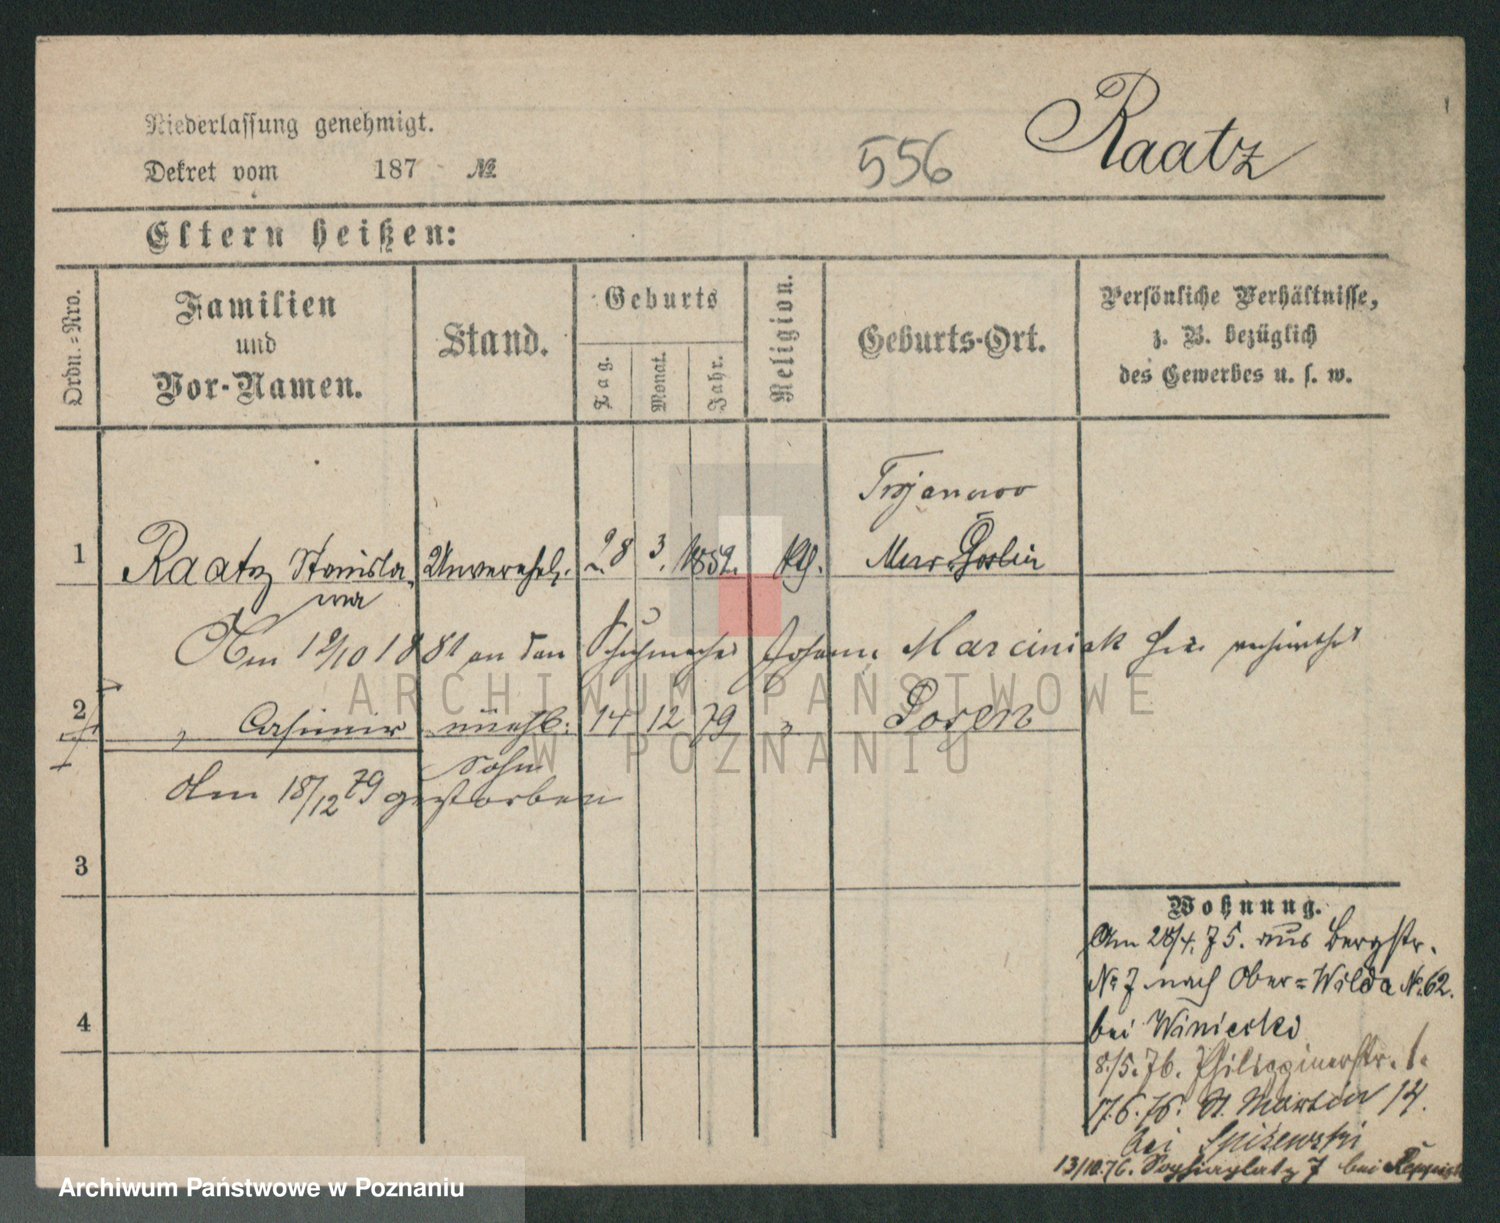 Niederlassung genehmigt.
Dekret vom 187 №
556
Raatz
Eltern heißen:
Ordn.=Nro.
Familien
und
Vor-Namen.
Stand.
Geburts
Tag.
Monat.
Jahr.
Religion.
Geburts-Ort.
Persönliche Verhältnisse,
z. B. bezüglich
des Gewerbes u. s. w.
Trojanowo
1 Raatz Stanisla Unverehel. 28 3. 1859. kth. Mur. Goslin
wa
Am 19/10 1881 an den Schuhmacher Johann Marciniak hier verheirathet
2 " Casimir unehl: 14 12 79 " Posen
Sohn
Am 18/12 79 gestorben
3
4
Wohnung.
Am 28/4. 75. aus Bergstr.
No 7 nach Ober=Wilda No. 62.
bei Winiecki
8./5. 76. Philippinerstr. 1.
17.6.76. St. Martin 14.
bei Spizewski
13/10.76. Sophienplatz 7 bei
ARCHIWUM PAŃSTWOWE
W POZNANIU
Archiwum Państwowe w Poznaniu